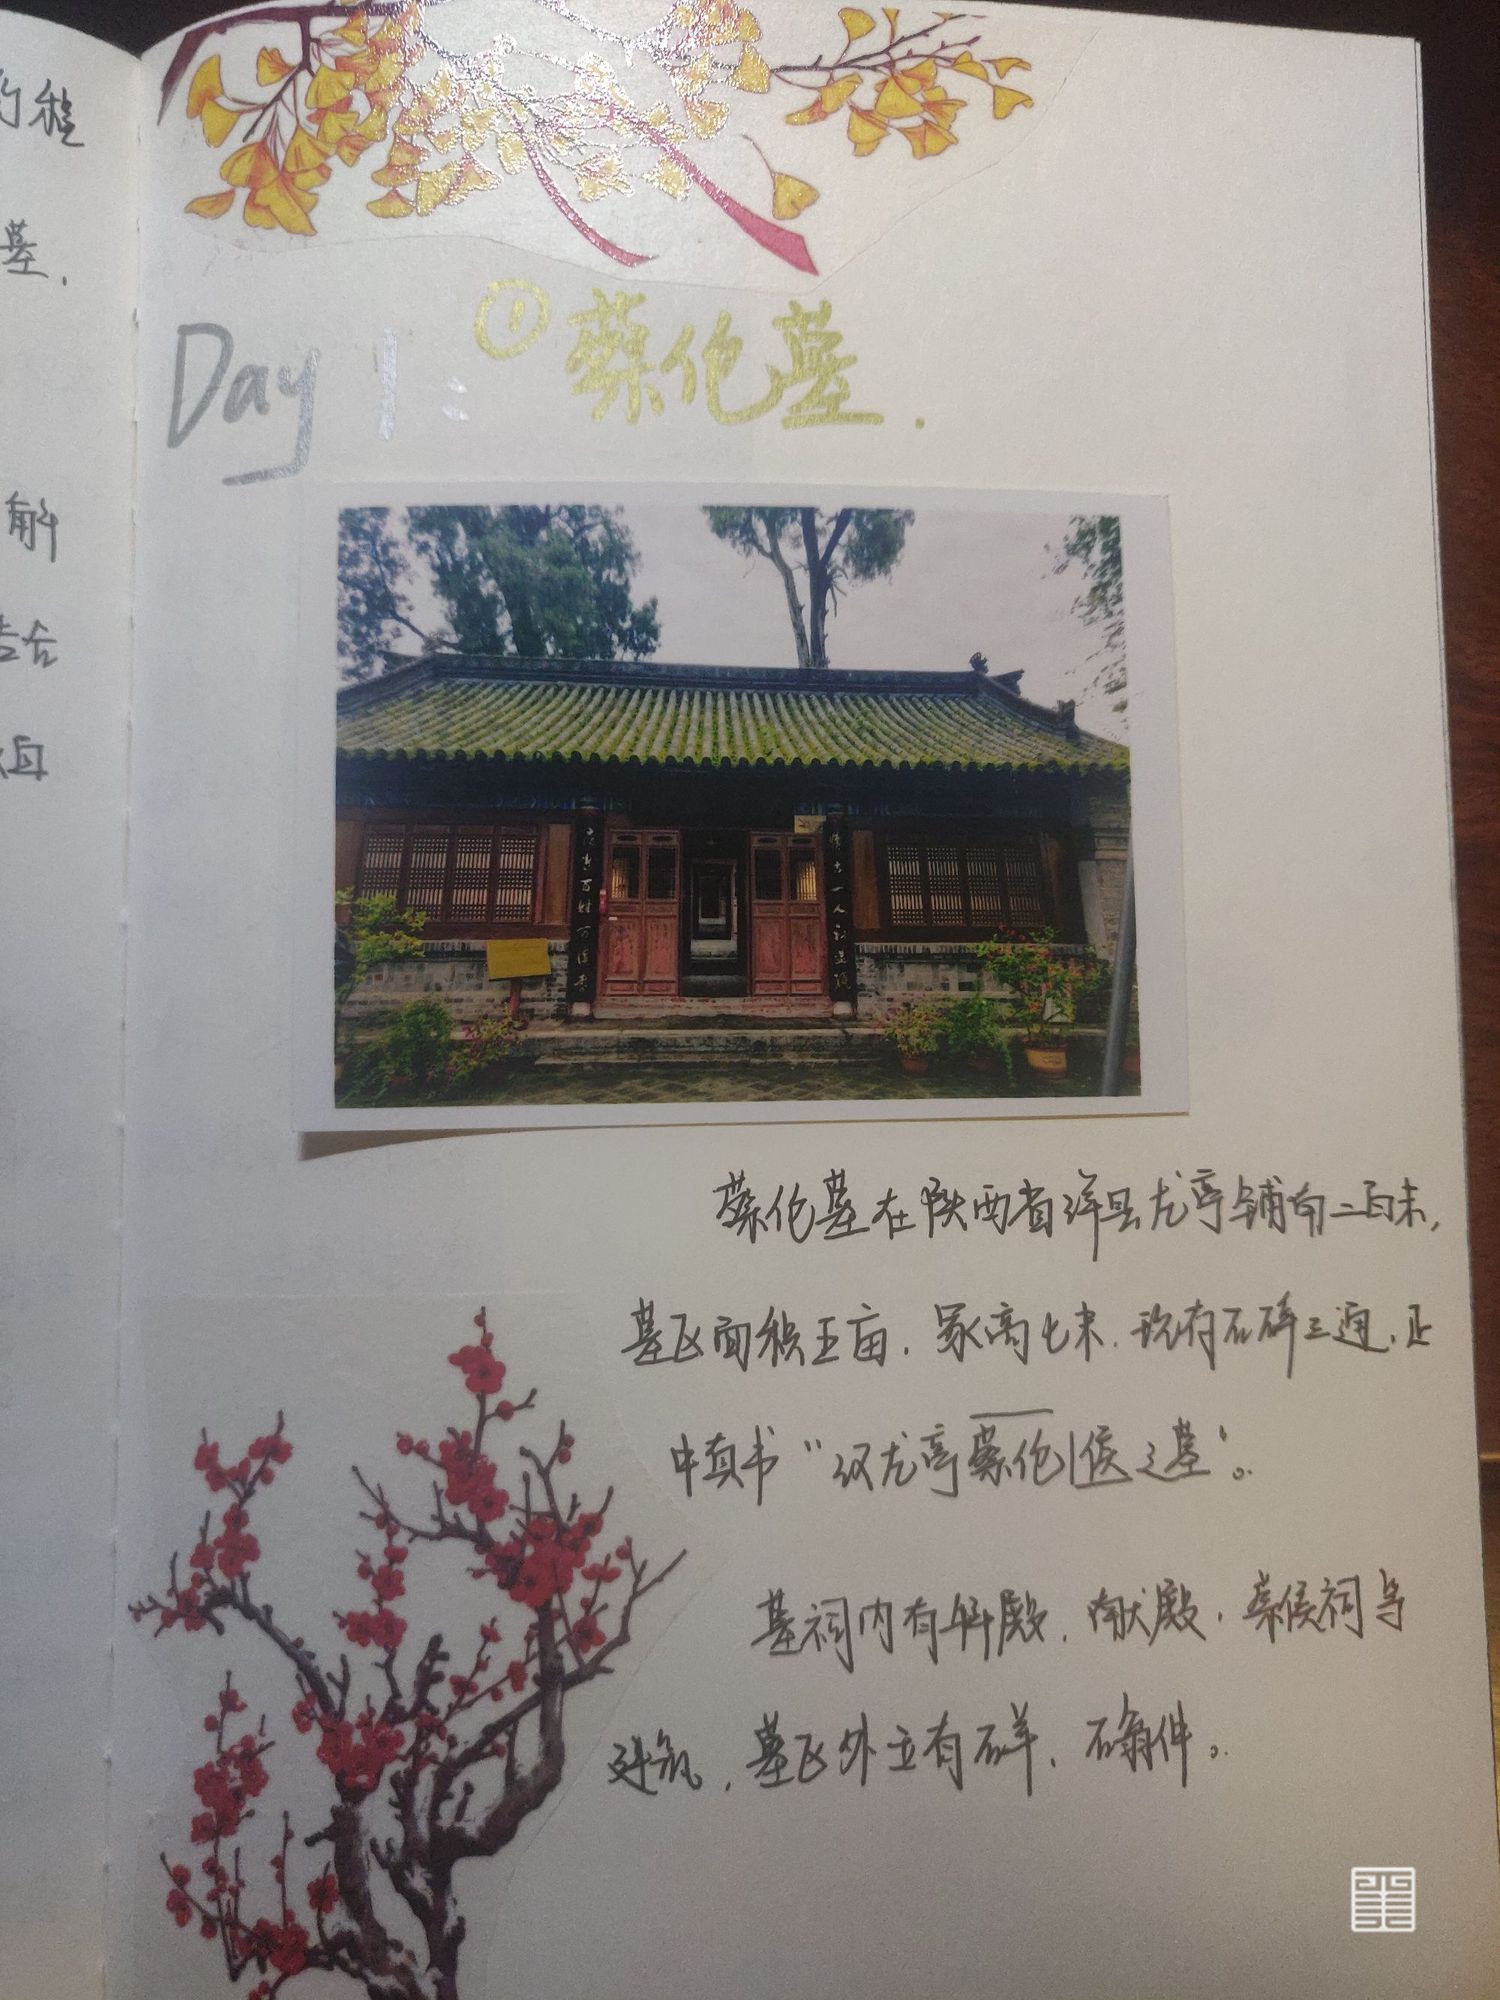 墓.
解
Day 1: ①蔡伦墓.
蔡伦墓在陕西省洋县龙亭铺南二百米,
墓区面积五亩.冢高七米.现存石碑三通,正
中真书“汉龙亭蔡伦侯之墓”。
墓祠内有拜殿、献殿、蔡侯祠等
建筑,墓区外立有石羊、石翁仲。